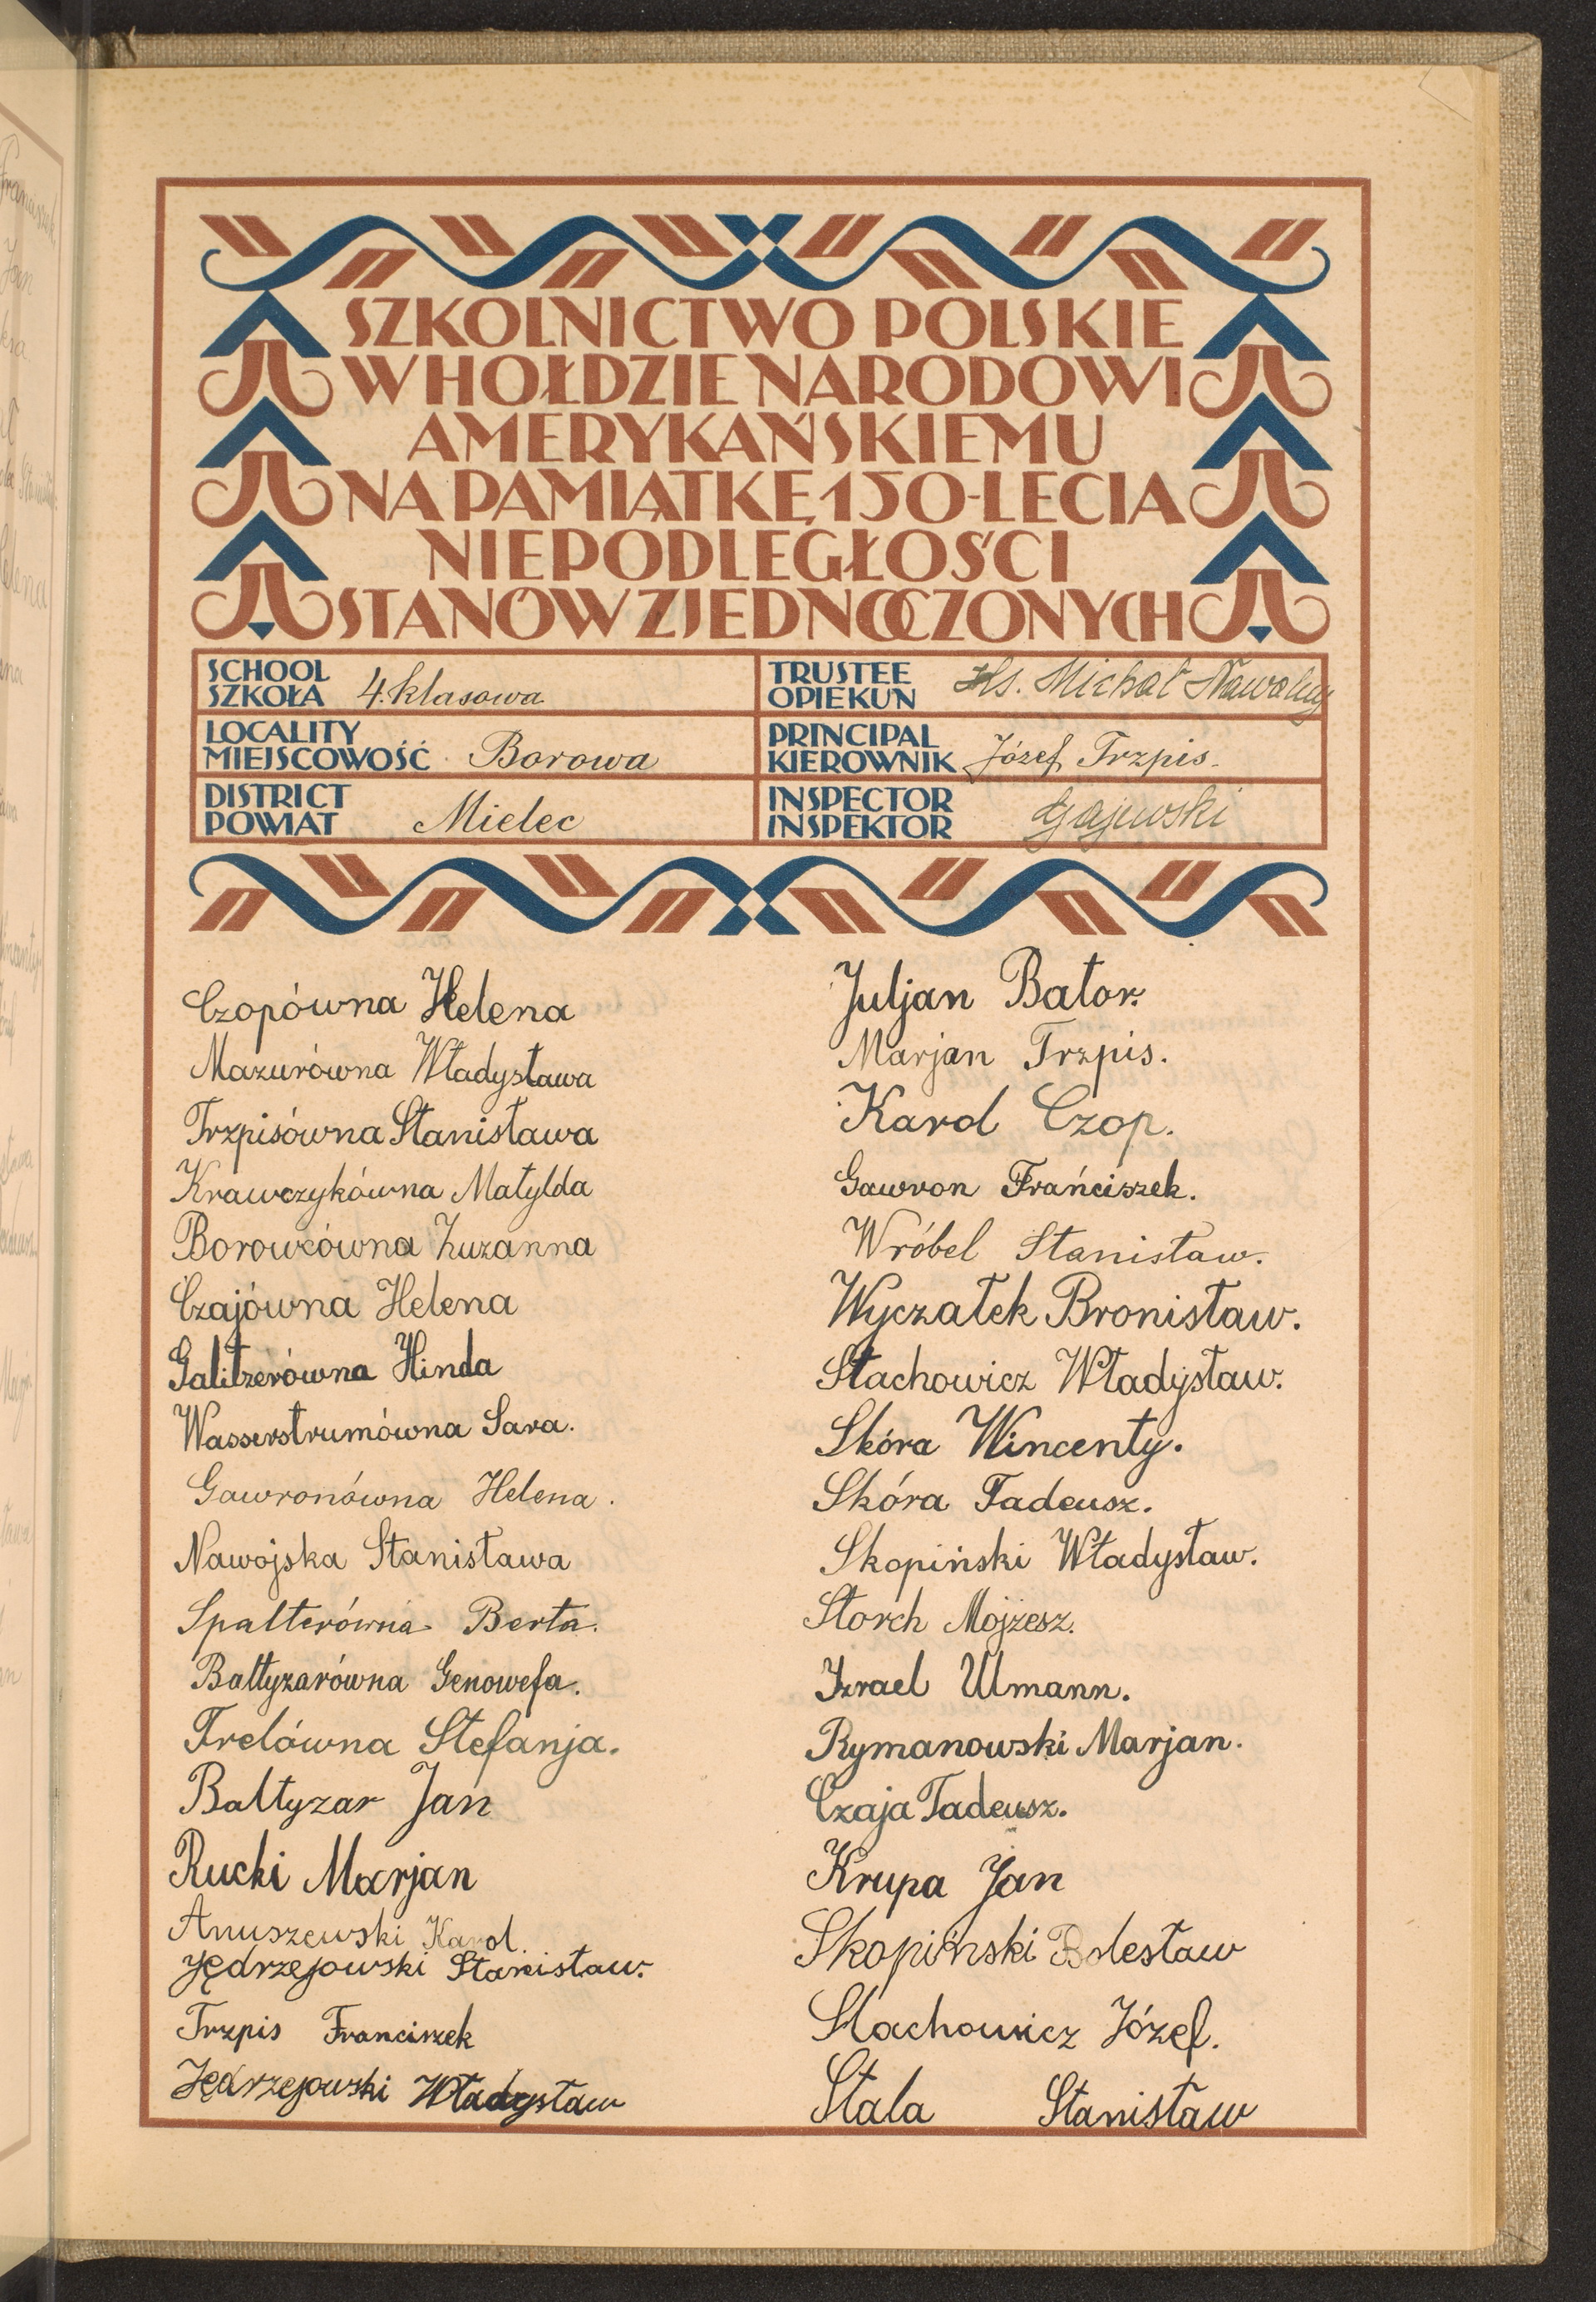 SZKOLNICTWO POLSKIE
W HOŁDZIE NARODOWI
AMERYKAŃSKIEMU
NA PAMIĄTKĘ 150-LECIA
NIEPODLEGŁOŚCI
STANÓW ZJEDNOCZONYCH
SCHOOL
SZKOŁA 4. klasowa
LOCALITY
MIEJSCOWOŚĆ Borowa
DISTRICT
POWIAT Mielec
TRUSTEE
OPIEKUN Ks. Michał Nawalny
PRINCIPAL
KIEROWNIK Józef Trzpis.
INSPECTOR
INSPEKTOR Gajewski
Czopówna Helena
Mazurówna Władysława
Trzpisówna Stanisława
Krawczykówna Matylda
Borowcówna Zuzanna
Czajówna Helena
Galitzerówna Hinda
Wasserstrumówna Sara.
Gawronówna Helena.
Nawojska Stanisława
Spalterówna Berta.
Baltyzarówna Genowefa.
Trelówna Stefanja.
Baltyzar Jan
Rucki Marjan
Anuszewski Karol.
Jędrzejowski Stanisław.
Trzpis Franciszek
Jędrzejowski Władysław
Juljan Bator.
Marjan Trzpis.
Karol Czop.
Gawron Frańciszek.
Wróbel Stanisław.
Wyczałek Bronisław.
Stachowicz Władysław.
Skóra Wincenty.
Skóra Tadeusz.
Skopiński Władysław.
Storch Mojżesz.
Izrael Ulmann.
Rymanowski Marjan.
Czaja Tadeusz.
Krupa Jan
Skopiński Bolesław
Stachowicz Józef.
Stala Stanisław